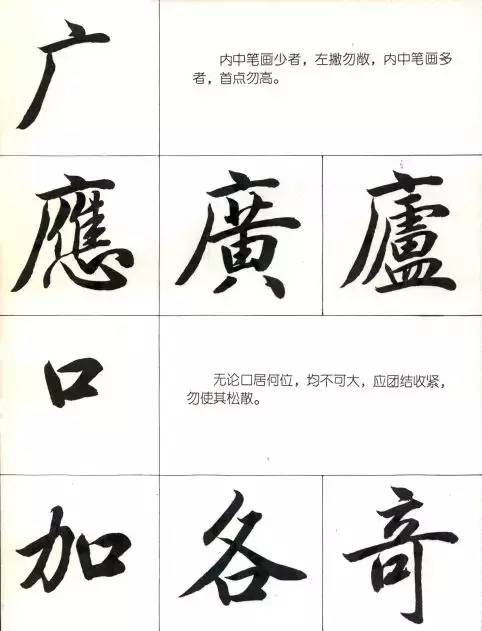 广
内中笔画少者，左撇勿敞，内中笔画多
者，首点勿高。
應 廣 廬
口
无论口居何位，均不可大，应团结收紧，
勿使其松散。
加 各 奇